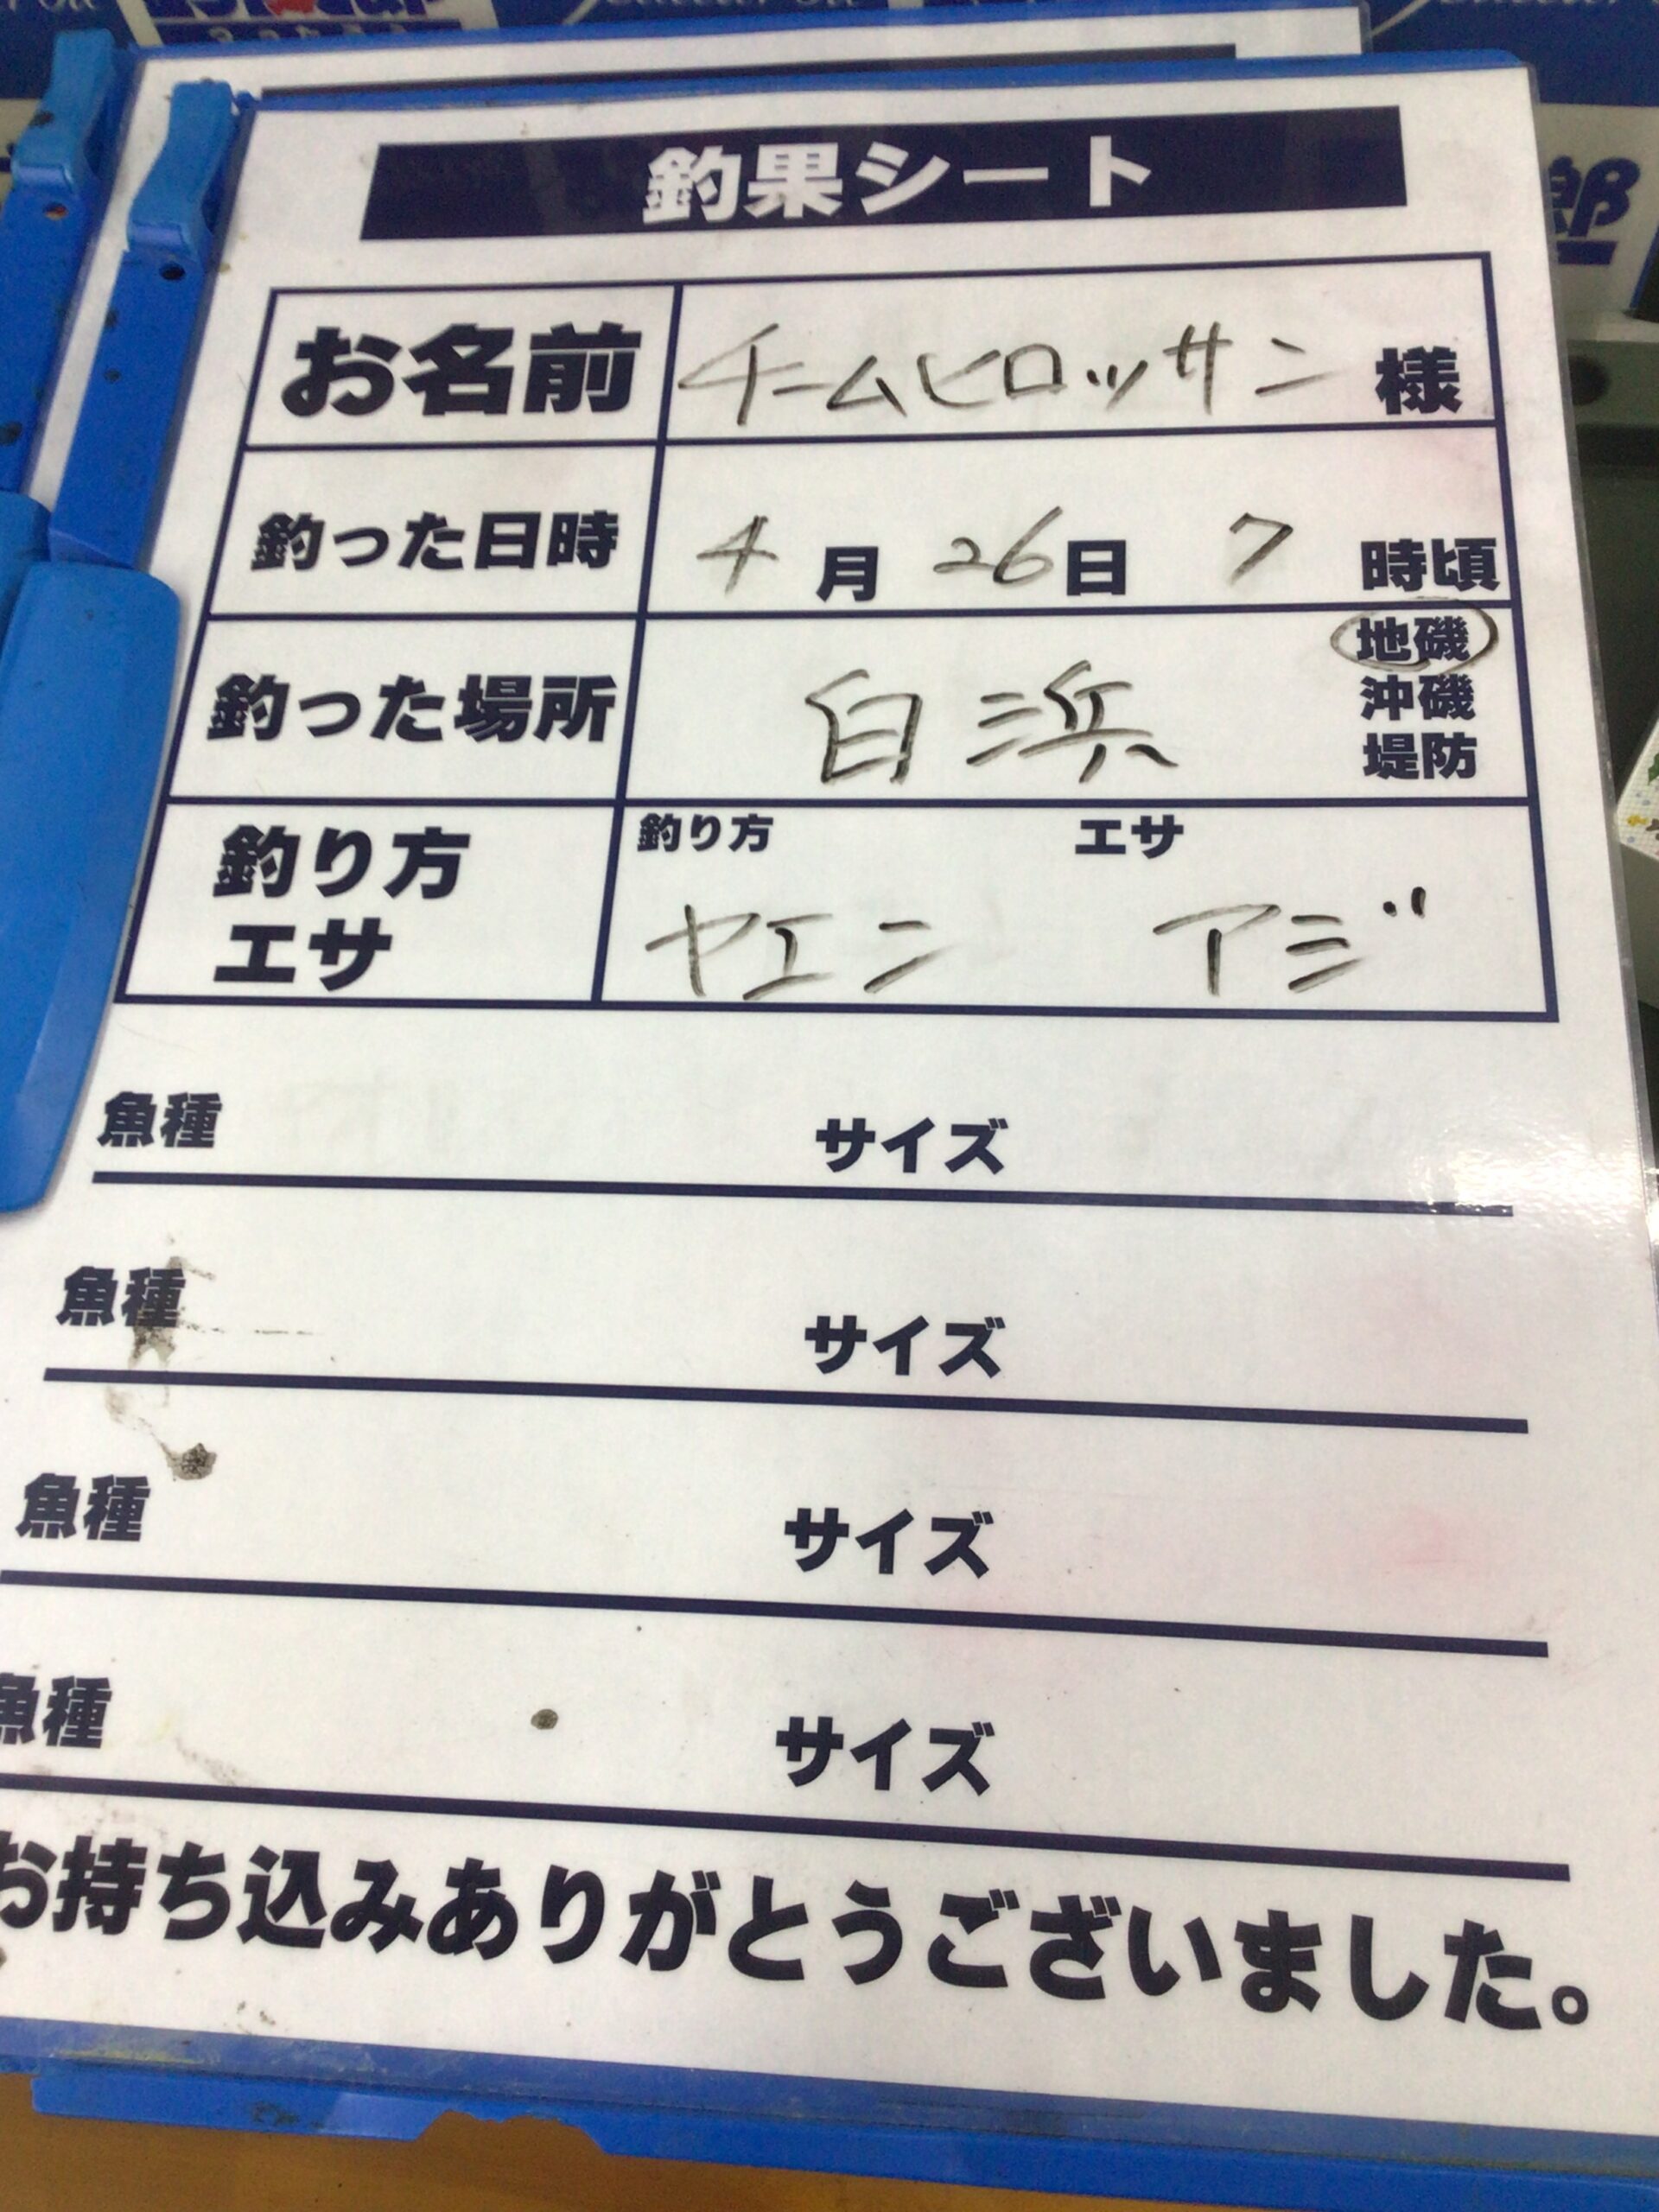 釣果シート
お名前 チームヒロッサン 様
釣った日時 4月26日 7時頃
釣った場所 白浜 地磯 沖磯 堤防
釣り方 エサ 釣り方 ヤエン エサ アジ
魚種 サイズ
魚種 サイズ
魚種 サイズ
魚種 サイズ
お持ち込みありがとうございました。
郎